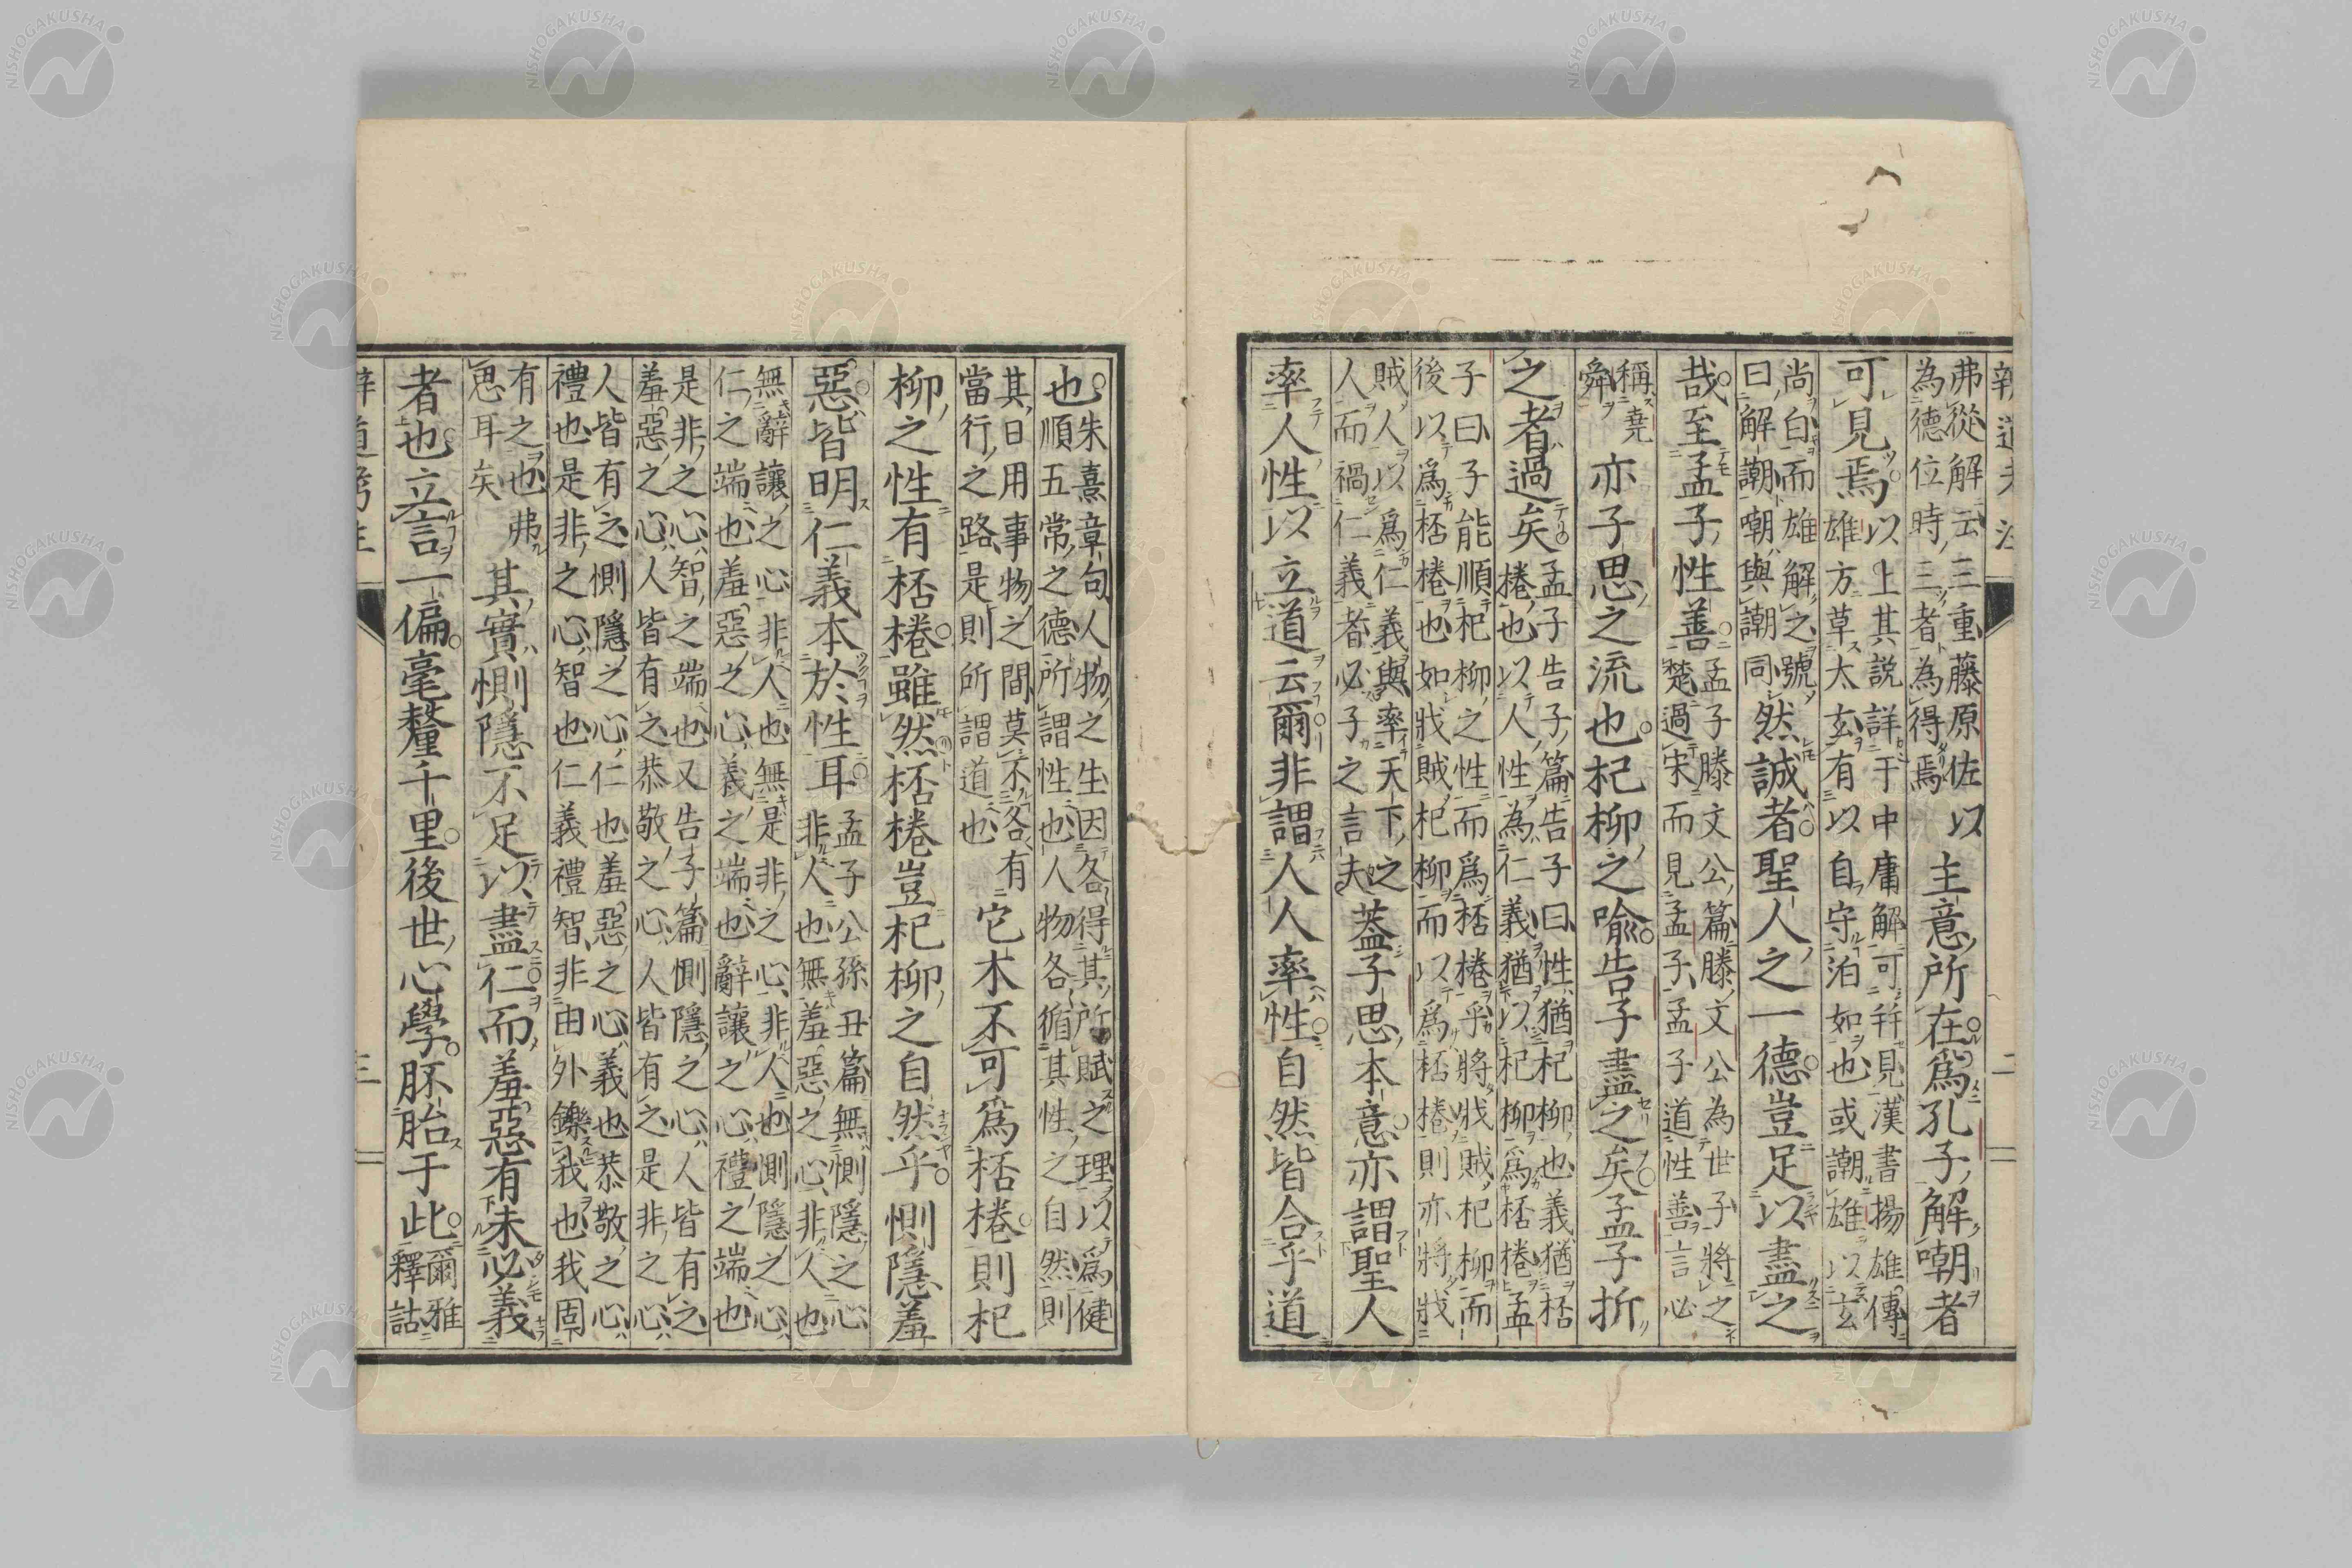 弗從解云三重藤原佐
為德位時三者為得焉
以主意所在爲孔子解嘲者
可見焉
以上其説詳于中庸解可幷見漢書揚雄傳
雄方草太玄有以自守泊如也或謿雄以玄
尚白而雄解之號
曰解謿嘲與謿同
然誠者聖人之一德豈足以盡之
哉至孟子性善
孟子滕文公篇滕文公為世子將之
楚過宋而見孟子孟子道性善言必
稱堯
舜
亦子思之流也杞柳之喩告子盡之矣孟子折
之者過矣
孟子告子篇告子曰性猶杞柳也義猶桮
棬也以人性為仁義猶以杞柳爲桮棬孟
子曰子能順杞柳之性而爲桮棬乎將戕賊杞柳而
後以爲桮棬也如戕賊杞柳而以爲桮棬則亦將戕
賊人以爲仁義與率天下之
人而禍仁義者必子之言夫
葢子思本意亦謂聖人
率人性以立道云爾非謂人人率性自然皆合乎道
也
朱熹章句人物之生因各得其所賦之理以爲健
順五常之德所謂性也人物各循其性之自然則
其日用事物之間莫不各有
當行之路是則所謂道也
它木不可爲桮棬則杞
柳之性有桮棬雖然桮棬豈杞柳之自然乎惻隱羞
惡皆明仁義本於性耳
孟子公孫丑篇無惻隱之心
非人也無羞惡之心非人也
無辭讓之心非人也無是非之心非人也惻隱之心
仁之端也羞惡之心義之端也辭讓之心禮之端也
是非之心智之端也又告子篇惻隱之心人皆有之
羞惡之心人皆有之恭敬之心人皆有之是非之心
人皆有之惻隱之心仁也羞惡之心義也恭敬之心
禮也是非之心智也仁義禮智非由外鑠我也我固
有之也弗
思耳矣
其實惻隱不足以盡仁而羞惡有未必義
者也立言一偏毫釐千里後世心學胚胎于此
爾雅
釋詁